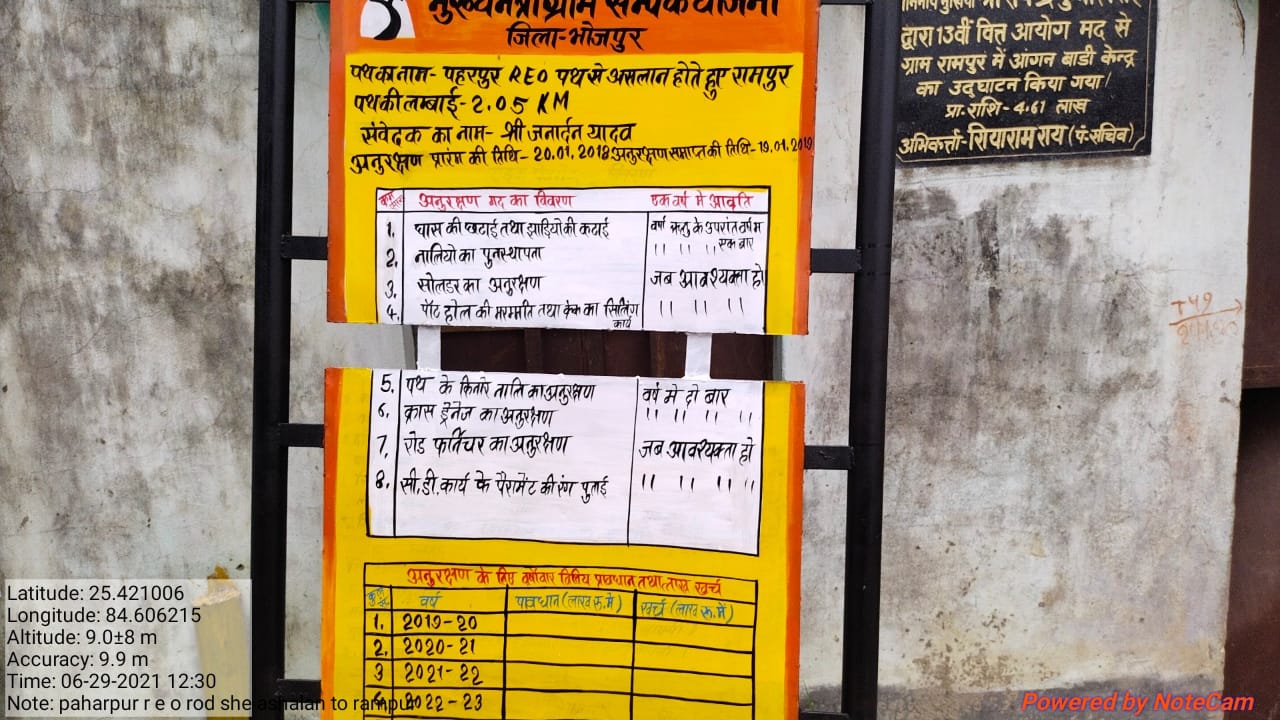 मुख्यमंत्री ग्राम सम्पर्क योजना
जिला-भोजपुर
पथ का नाम- पहरपुर REO पथ से असलान होते हुए रामपुर
पथ की लम्बाई- 2.05 KM
संवेदक का नाम- श्री जनार्दन यादव
अनुरक्षण प्रारंभ की तिथि- 20.01.2018 अनुरक्षण समाप्त की तिथि- 19.01.2019
अनुरक्षण मद का विवरण एक वर्ष मे आवृति
1. घास की छटाई तथा झाड़ियो की कटाई वर्षा ऋतु के उपरांत वर्ष म एक बार
2. नालियो का पुनस्थापना " " "
3. सोलडर का अनुरक्षण जब आवश्यक्ता हो
4. पॉट होल की मरम्मति तथा क्रेक का सिलिंग कार्य " " " "
5. पथ के किनारे नालि का अनुरक्षण वर्ष मे दो बार
6. क्रास ड्रेनेज का अनुरक्षण " " " "
7. रोड फर्निचर का अनुरक्षण जब आवश्यक्ता हो
8. सी.डी. कार्य के पैरामेंट की रंग पुताई " " " "
अनुरक्षण के लिए वर्षावार वित्तिय प्रावधान तथा खर्च
वर्ष प्रावधान (लाख रू. में) खर्च (लाख रू. में)
1. 2019-20
2. 2020-21
3 2021-22
4. 2022-23
द्वारा 13वीं वित्त आयोग मद से
ग्राम रामपुर में आंगन बाडी केन्द्र
का उद्घाटन किया गया।
प्रा॰ राशि - 4.61 लाख
अभिकर्त्ता- सियाराम राय (पं॰सचिव)
Latitude: 25.421006
Longitude: 84.606215
Altitude: 9.0±8 m
Accuracy: 9.9 m
Time: 06-29-2021 12:30
Note: paharpur r e o rod she ashalan to rampur
Powered by NoteCam